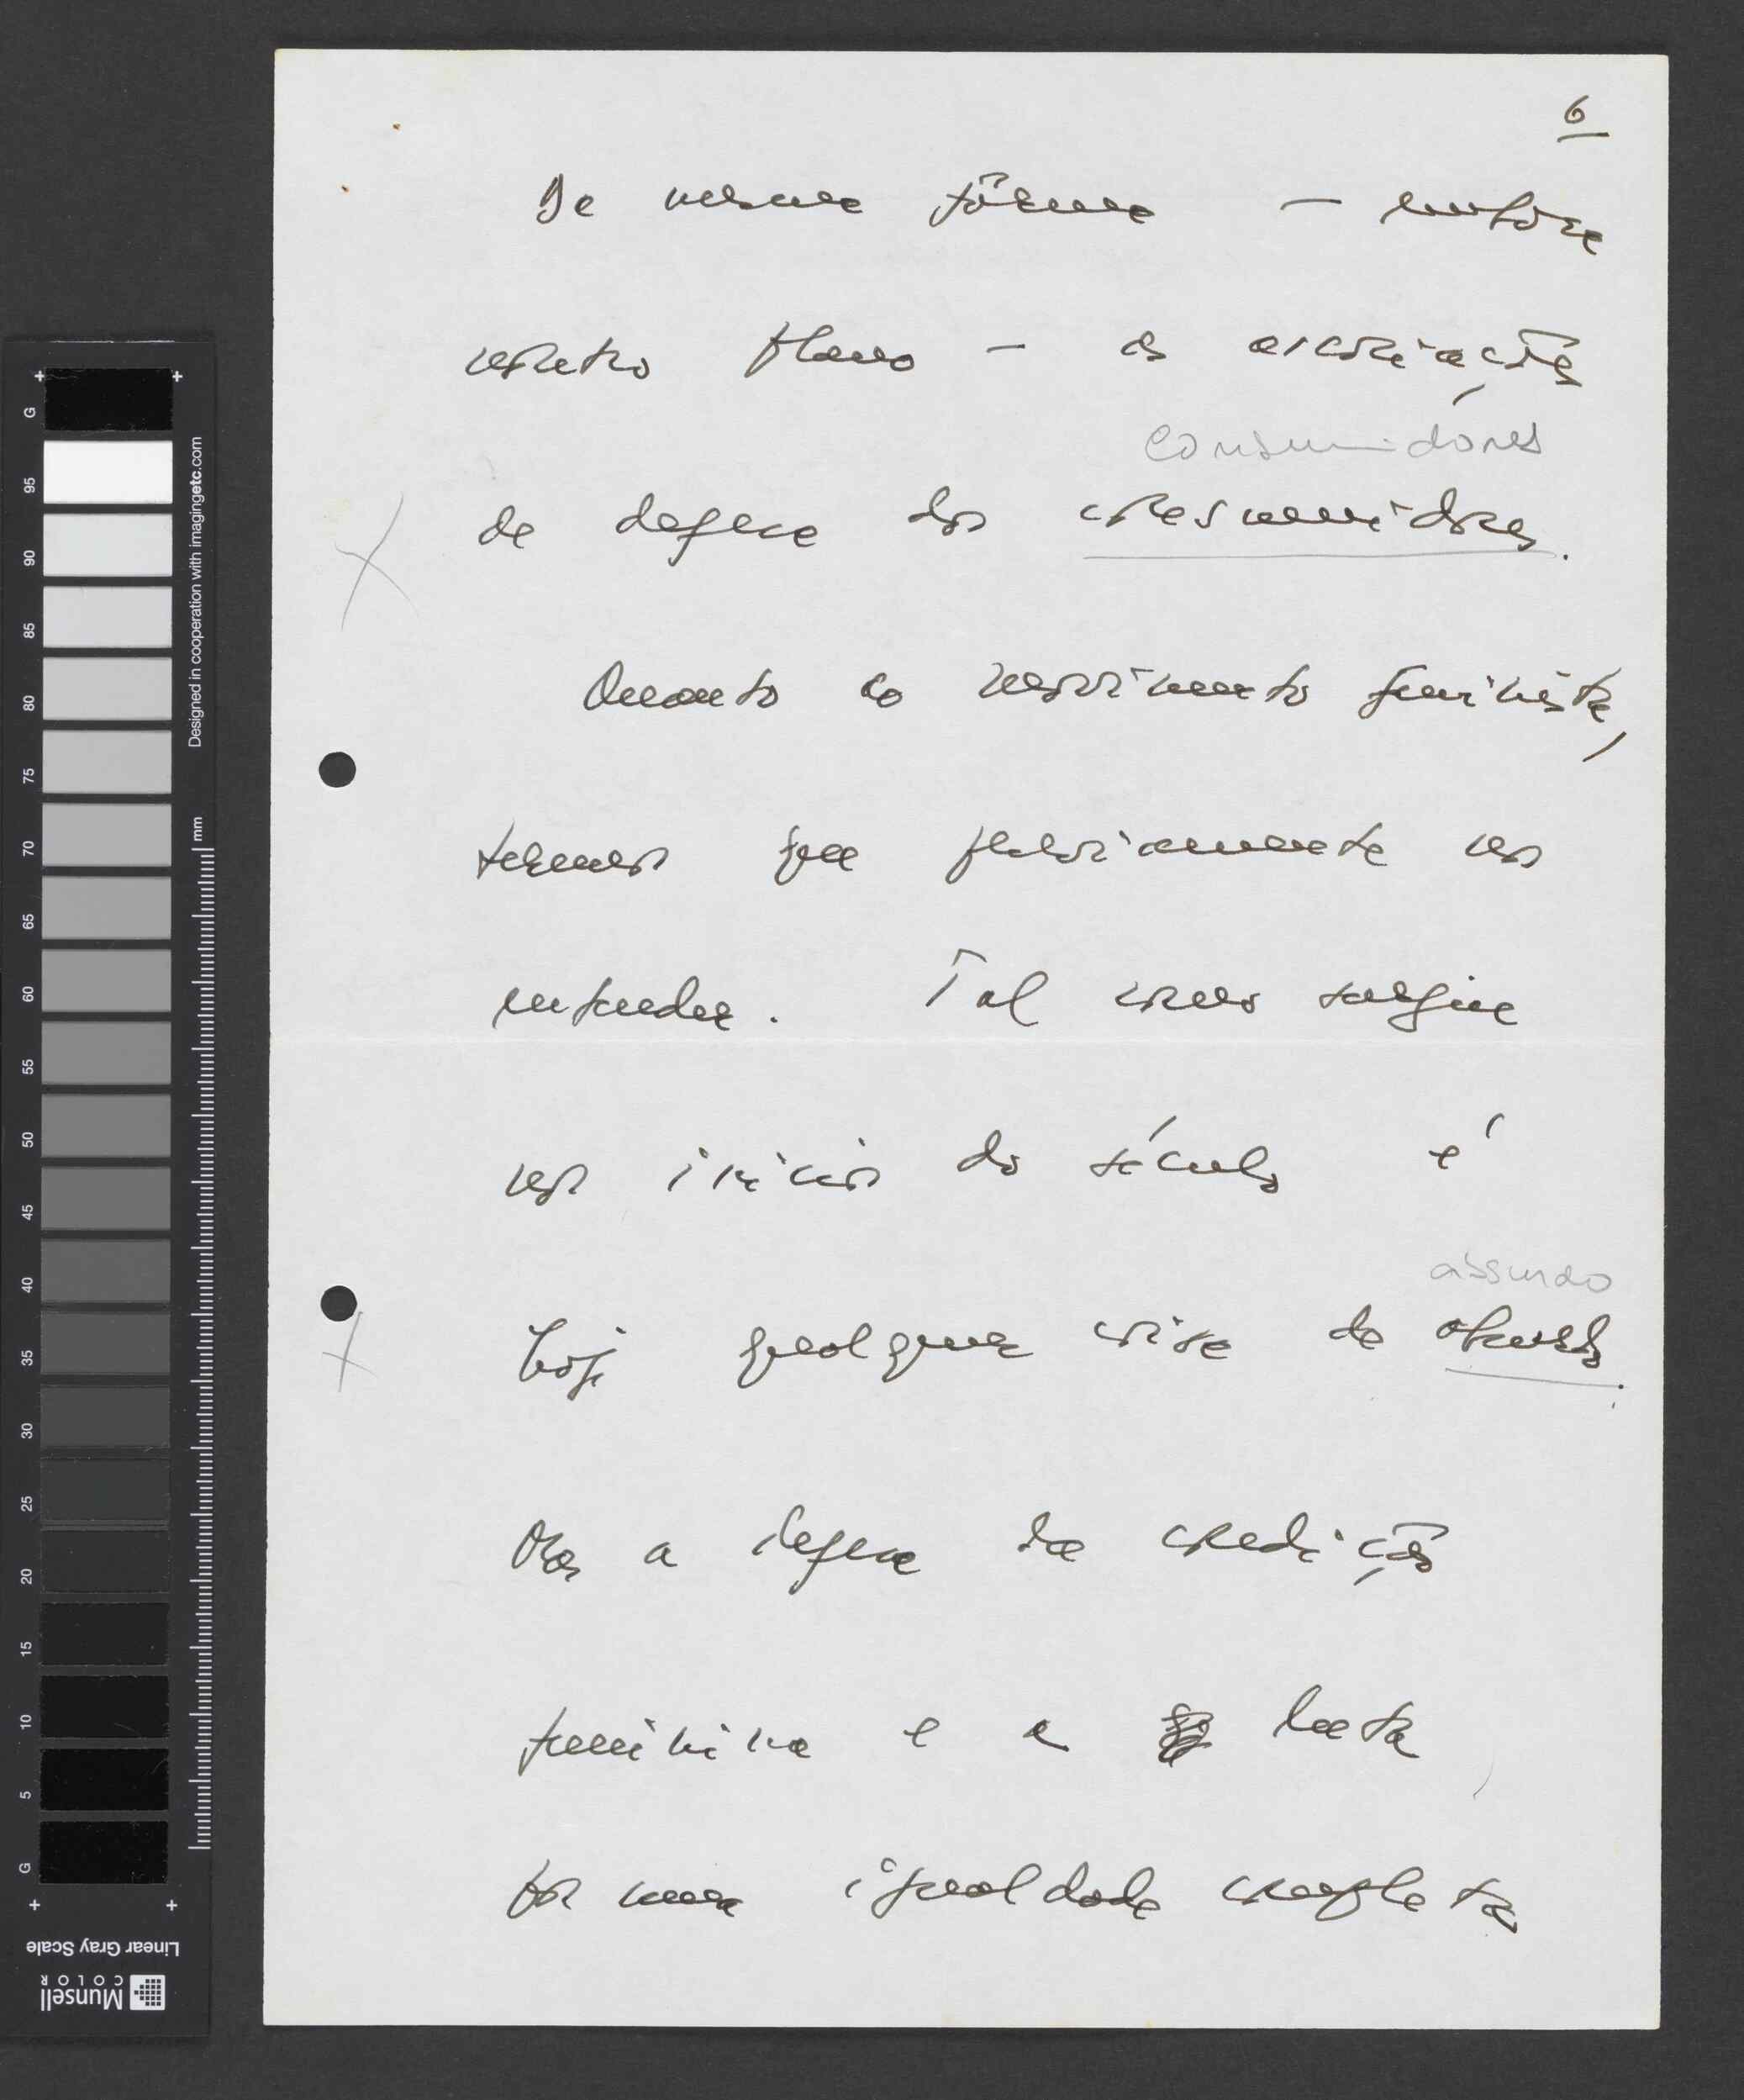 6
Da mesma fórma — embora
noutro plano — as associações
consumidores
de defesa dos consumidores.
Quanto ao movimento feminista,
temos que previamente nos
entender. Tal como surgiu
no início do século é
absurdo
hoje qualquer coisa de absurdo.
Mas a defesa da condição
feminina e a luta
por uma igualdade completa
G 95 90 85 80 75 70 65 60 55 50 45 40 35 30 25 20 15 10 5 G
mm
Designed in cooperation with imagingetc.com
Linear Gray Scale
Munsell
COLOR